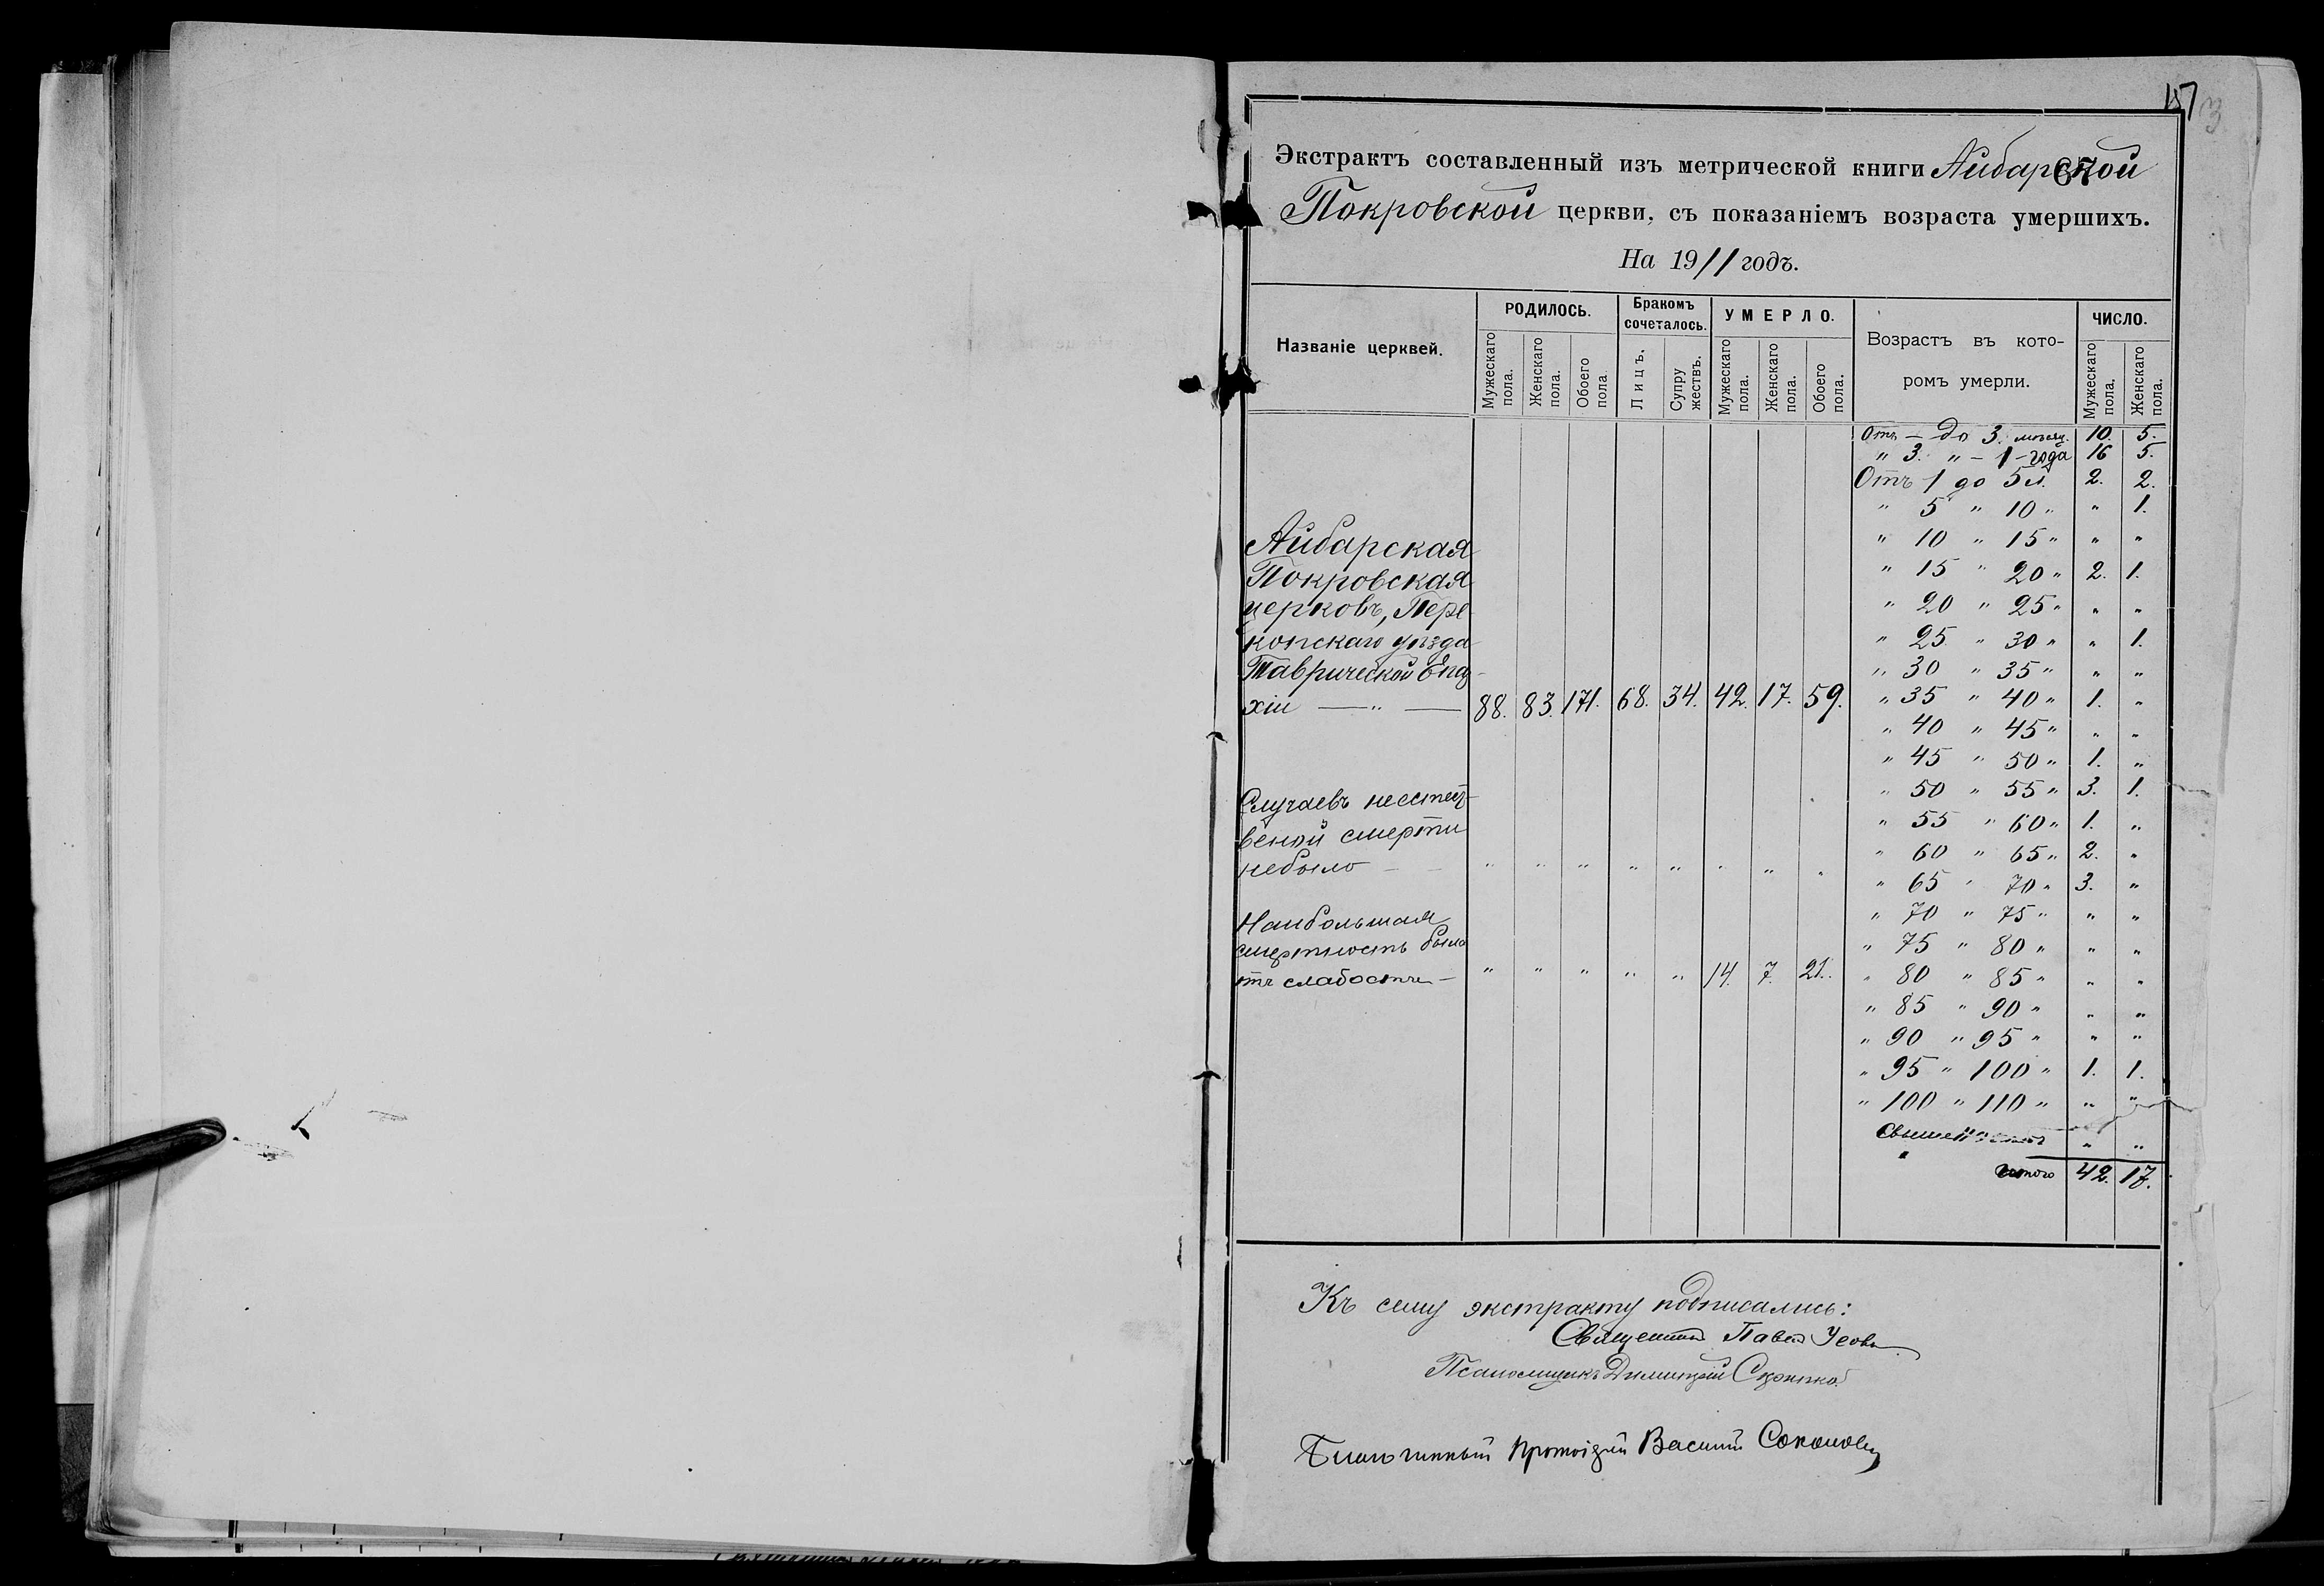 157
3
67
Экстрактъ составленный изъ метрической книги Айбарской
Покровской церкви, съ показаніемъ возраста умершихъ.
На 1911 годъ.
Названіе церквей.
РОДИЛОСЬ.
Мужескаго пола.
Женскаго пола.
Обоего пола
Бракомъ сочеталось.
Лицъ.
Супружествъ.
УМЕРЛО.
Мужескаго пола.
Женскаго пола.
Обоего пола.
Возрастъ въ кото-
ромъ умерли.
ЧИСЛО.
Мужескаго пола.
Женскаго пола.
Айбарская
Покровская
церковь, Пере
копскаго уѣзда
Таврической Епар
хіи — " — 88. 83. 171. 68. 34. 42. 17. 59.
Случаевъ неестест
веной смерти
небыло — — " " " " " " " "
Наибольшая
смертность была
отъ слабости — " " " " " 14. 7. 21.
Отъ — до 3. мѣсяц. 10. 5.
" 3. " — 1 — года 16 5.
Отъ 1 до 5 л. 2. 2.
" 5 " 10 " " 1.
" 10 " 15 " " "
" 15 " 20 " 2. 1.
" 20 " 25 " " "
" 25 " 30 " " 1.
" 30 " 35 " " "
" 35 " 40 " 1. "
" 40 " 45 " " "
" 45 " 50 " 1. "
" 50 " 55 " 3. 1.
" 55 " 60 " 1. "
" 60 " 65 " 2. "
" 65 " 70 " 3. "
" 70 " 75 " " "
" 75 " 80 " " "
" 80 " 85 " " "
" 85 " 90 " " "
" 90 " 95 " " "
" 95 " 100 " 1. 1.
" 100 " 110 " " "
Свыше " "
итого 42. 17.
Къ сему экстракту подписались:
Священникъ Павелъ Усовъ
Псаломщикъ Димитрій
Благочинный Протоіерей Василій Соколовъ